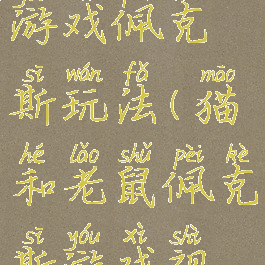 游戏佩克
sī wán fǎ māo
斯玩法(猫
hé lǎo shǔ pèi kè
和老鼠佩克
sī yóu xì shì
斯游戏视